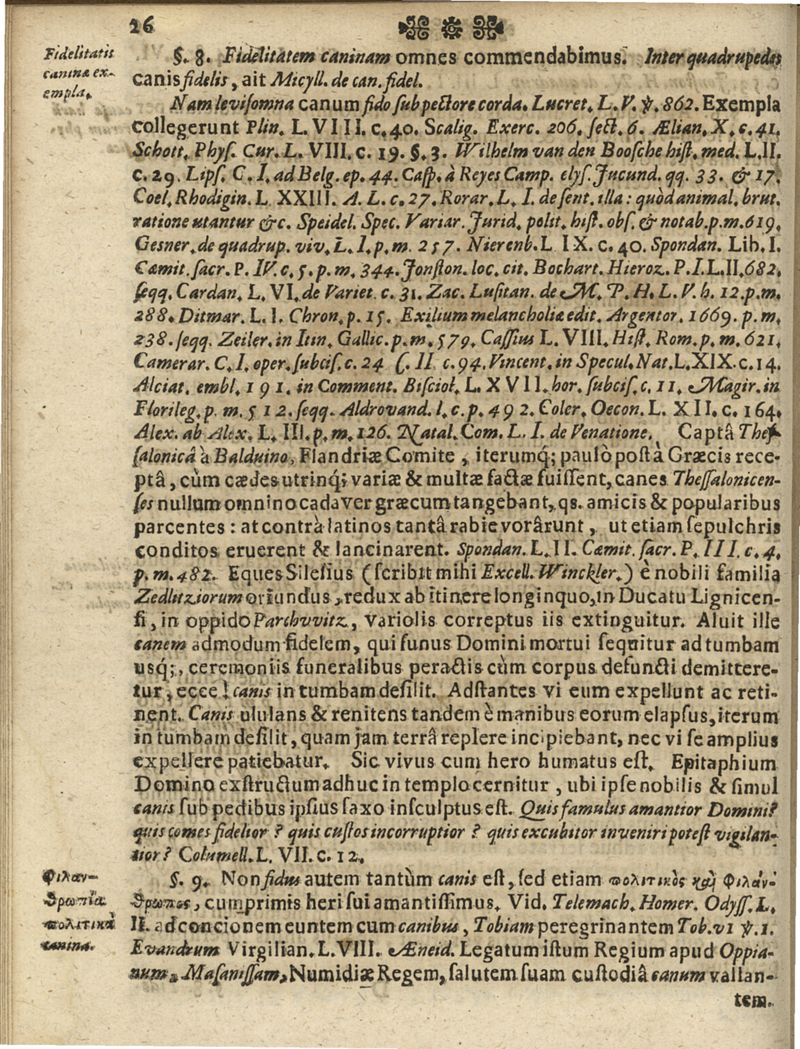 26
Fidelitatis
caninæ ex-
empla.
§. 8. Fidelitatem caninam omnes commendabimus. Inter quadrupedes
canis fidelis, ait Micyll. de can. fidel.
Nam levisomna canum fido sub pectore corda. Lucret. L. V. ꝟ. 862. Exempla
collegerunt Plin. L. VIII. c. 40. Scalig. Exerc. 206. sect. 6. Ælian. X. c. 41.
Schott. Phys. Cur. L. VIII. c. 19. §. 3. Wilhelm van den Boosche hist. med. L. II.
c. 29. Lips. C. I. ad Belg. ep. 44. Casp. à Reyes Camp. elys. Jucund. qq. 33. & 17.
Coel. Rhodigin. L XXIII. A. L. c. 27. Rorar. L. I. de sent. illa: quòd animal. brut.
ratione utantur &c. Speidel. Spec. Variar. Jurid. polit. hist. obs. & notab. p. m. 619.
Gesner. de quadrup. viv. L. I. p. m. 257. Nieremb. L IX. c. 40. Spondan. Lib. I.
Cœmit. sacr. P. IV. c. 5. p. m. 344. Jonston. loc. cit. Bochart. Hieroz. P. I. L. II. 682.
seqq. Cardan. L. VI. de Variet. c. 31. Zac. Lusitan. de M. P. H. L. V. h. 12. p. m.
288. Ditmar. L. I. Chron. p. 15. Exilium melancholiæ edit. Argentor. 1669. p. m.
238. seqq. Zeiler. in Itin. Gallic. p. m. 579. Cassius L. VIII. Hist. Rom. p. m. 621.
Camerar. C. I. oper. subcis. c. 24 C. II c. 94. Vincent. in Specul. Nat. L. XIX. c. 14.
Alciat. embl. 191. in Comment. Bisciol. L. XVII. hor. subcis. c. 11. Magir. in
Florileg. p. m. 512. seqq. Aldrovand. l. c. p. 492. Coler. Oecon. L. XII. c. 164.
Alex. ab Alex. L. III. p. m. 126. Natal. Com. L. I. de Venatione. Captâ Thes-
salonicâ à Balduino, Flandriæ Comite, iterumq; paulò post à Græcis rece-
ptâ, cùm cædes utrinq; variæ & multæ factæ fuissent, canes Thessalonicen-
ses nullum omnino cadaver græcum tangebant, qs. amicis & popularibus
parcentes: at contrà latinos tantâ rabie vorârunt, ut etiam sepulchris
conditos eruerent & lancinarent. Spondan. L. II. Cœmit. sacr. P. III. c. 4.
p. m. 482. Eques Silesius (scribit mihi Excell. Winckler.) è nobili familia
Zedlitziorum oriundus, redux ab itinere longinquo, in Ducatu Lignicen-
si, in oppido Parchvvitz, variolis correptus iis extinguitur. Aluit ille
canem admodum fidelem, qui funus Domini mortui sequitur ad tumbam
usq;, ceremoniis funeralibus peractis cùm corpus defuncti demittere-
tur, ecce! canis in tumbam desilit. Adstantes vi eum expellunt ac reti-
nent. Canis ululans & renitens tandem è manibus eorum elapsus, iterum
in tumbam desilit, quam jam terrâ replere incipiebant, nec vi se amplius
expellere patiebatur. Sic vivus cum hero humatus est. Epitaphium
Domino exstructum adhuc in templo cernitur, ubi ipse nobilis & simul
canis sub pedibus ipsius saxo insculptus est. Quis famulus amantior Domini?
quis comes fidelior? quis custos incorruptior? quis excubitor inveniri potest vigilan-
tior? Columell. L. VII. c. 12.
Φιλαν-
θρωπία
πολιτικὰ
canina.
§. 9. Non fidus autem tantùm canis est, sed etiam πολιτικὸς καὶ Φιλάν-
θρωπος, cumprimis heri sui amantissimus. Vid. Telemach. Homer. Odyss. L.
II. ad concionem euntem cum canibus, Tobiam peregrinantem Tob. vi ꝟ. 1.
Evandrum Virgilian. L. VIII. Æneid. Legatum istum Regium apud Oppia-
num. Masanissam, Numidiæ Regem, salutem suam custodiâ canum vallan-
tem.